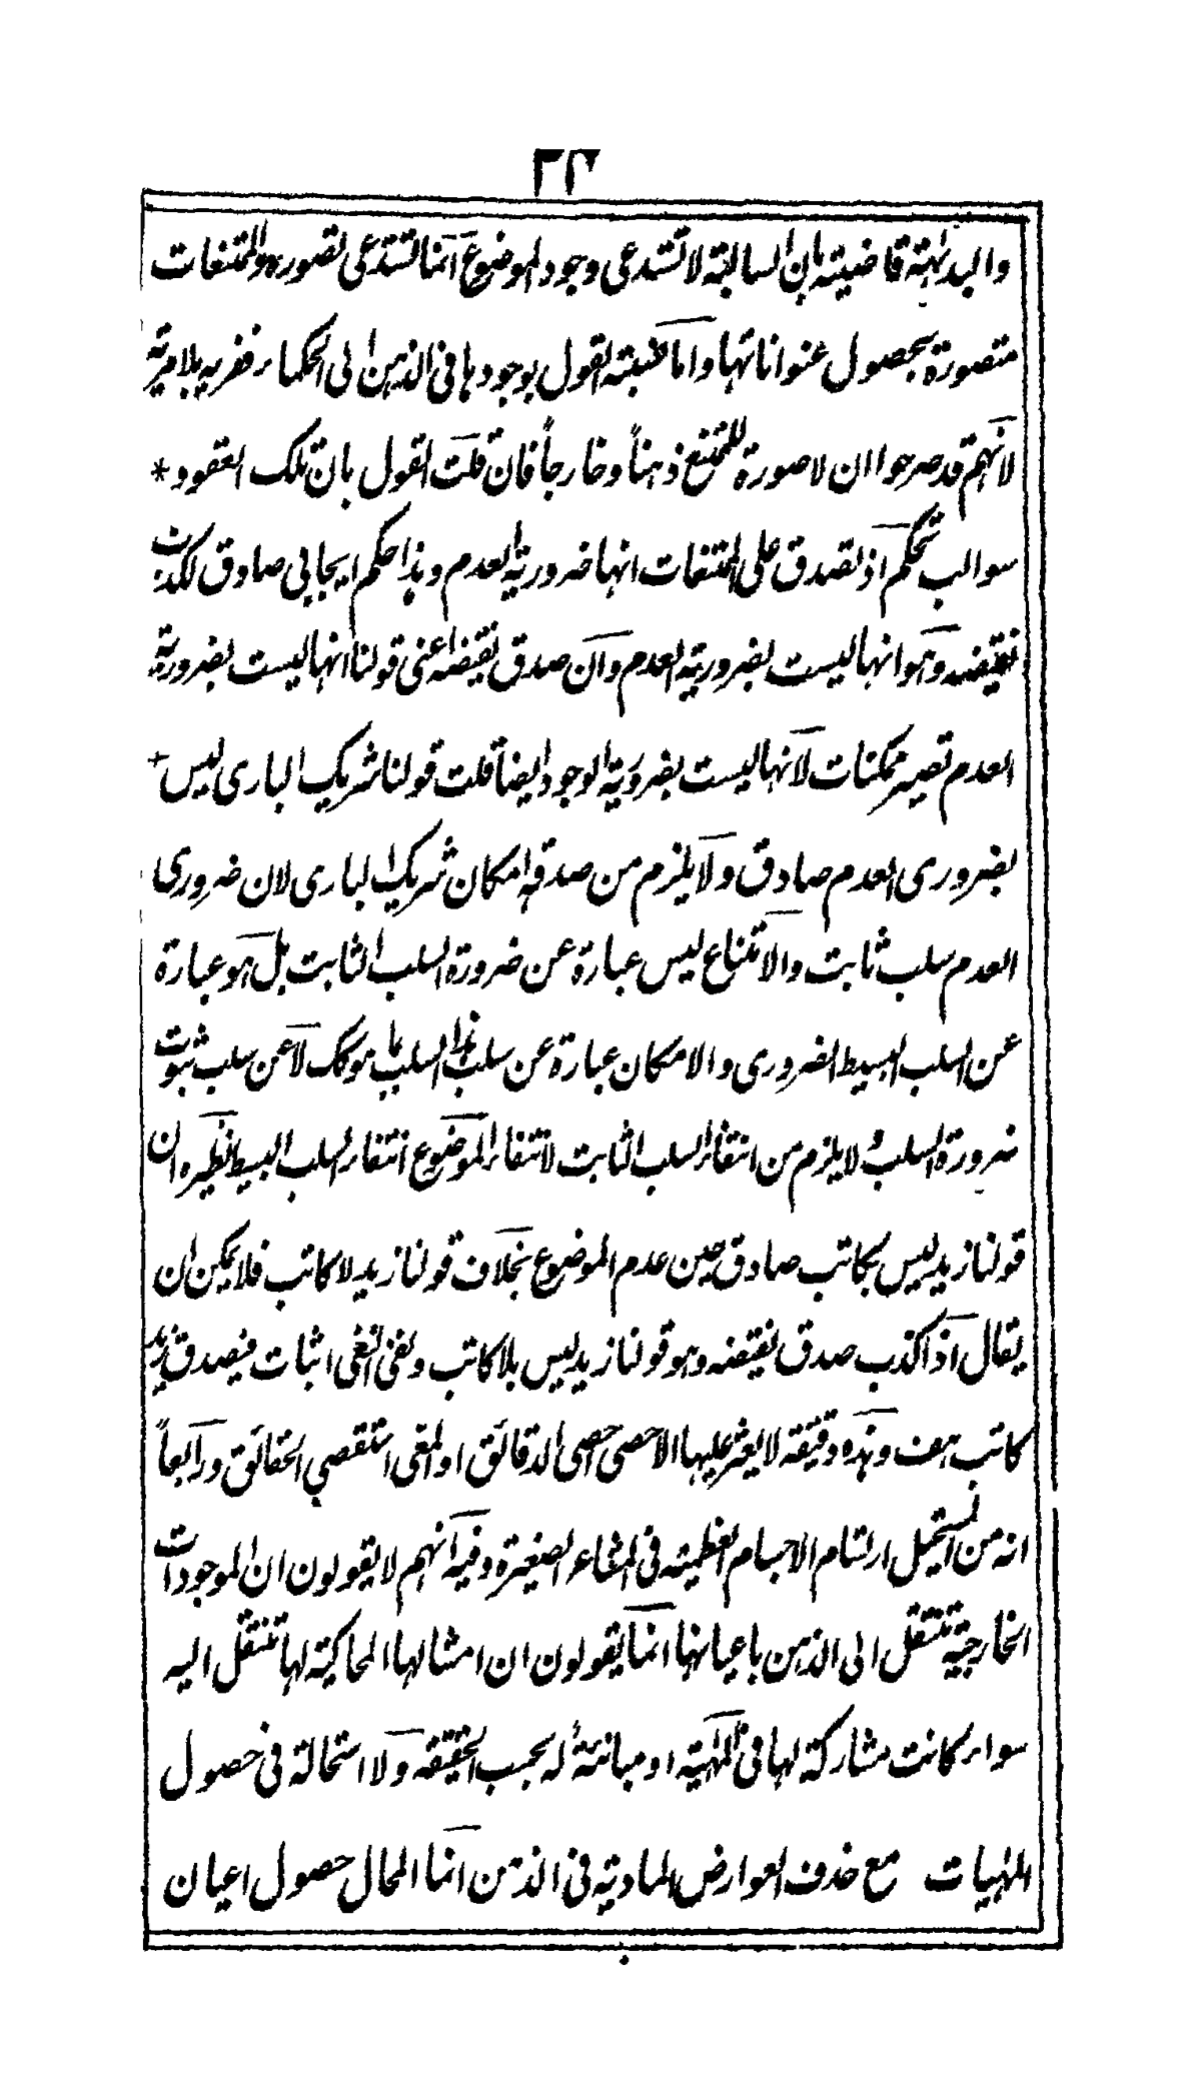 ٢٣
والبديهة قاضية بان السالبة لا تستدعى وجود الموضوع انما تستدعى تصوره والممتنعات
متصورة بحصول عنواناتها واما نسبة القول بوجودها فى الذهن الى الحكماء ففرية بلا مرية
لانهم قد صرحوا ان لا صورة للممتنع ذهناً وخارجاً فان قلت القول بان تلك العقود *
سوالب تحكم اذ تصدق على الممتنعات انها ضرورية العدم وهذا حكم ايجابى صادق لكذب
نقيضه وهو انها ليست بضرورية العدم وان صدق نقيضه اعنى قولنا انها ليست بضرورية
العدم تصير ممكنات لانها ليست بضرورية الوجود ايضا قلت قولنا شريك البارى ليس +
بضرورى العدم صادق ولا يلزم من صدقه امكان شريك البارى لان ضرورى
العدم سلب ثابت والامتناع ليس عبارة عن ضرورة السلب الثابت بل هو عبارة
عن السلب البسيط الضرورى والامكان عبارة عن سلب هذا السلب بما هو كك لا عن سلب ثبوت
ضرورة السلب ولا يلزم من انتفاء السلب الثابت لانتفاء الموضوع انتفاء السلب البسيط نظيره ان
قولنا زيد ليس بكاتب صادق حين عدم الموضوع بخلاف قولنا زيد لا كاتب فلا يمكن ان
يقال اذا كذب صدق نقيضه وهو قولنا زيد ليس بلا كاتب ونفى النفى اثبات فيصدق زيد
كاتب هف وهذه دقيقة لا يعثر عليها الا حصى احصى الدقائق او المغى استقصى الحقائق ورابعاً
انه من المستحيل ارتسام الاجسام العظيمة فى المشاعر الصغيرة وفيه انهم لا يقولون ان الموجودات
الخارجية تنتقل الى الذهن باعيانها انما يقولون ان امثالها المحاكية لها تنتقل اليه
سواء كانت مشاركة لها فى المهية او مبائنة له بحسب الحقيقة ولا استحالة فى حصول
المهيات مع حذف العوارض المادية فى الذهن انما المحال حصول اعيان